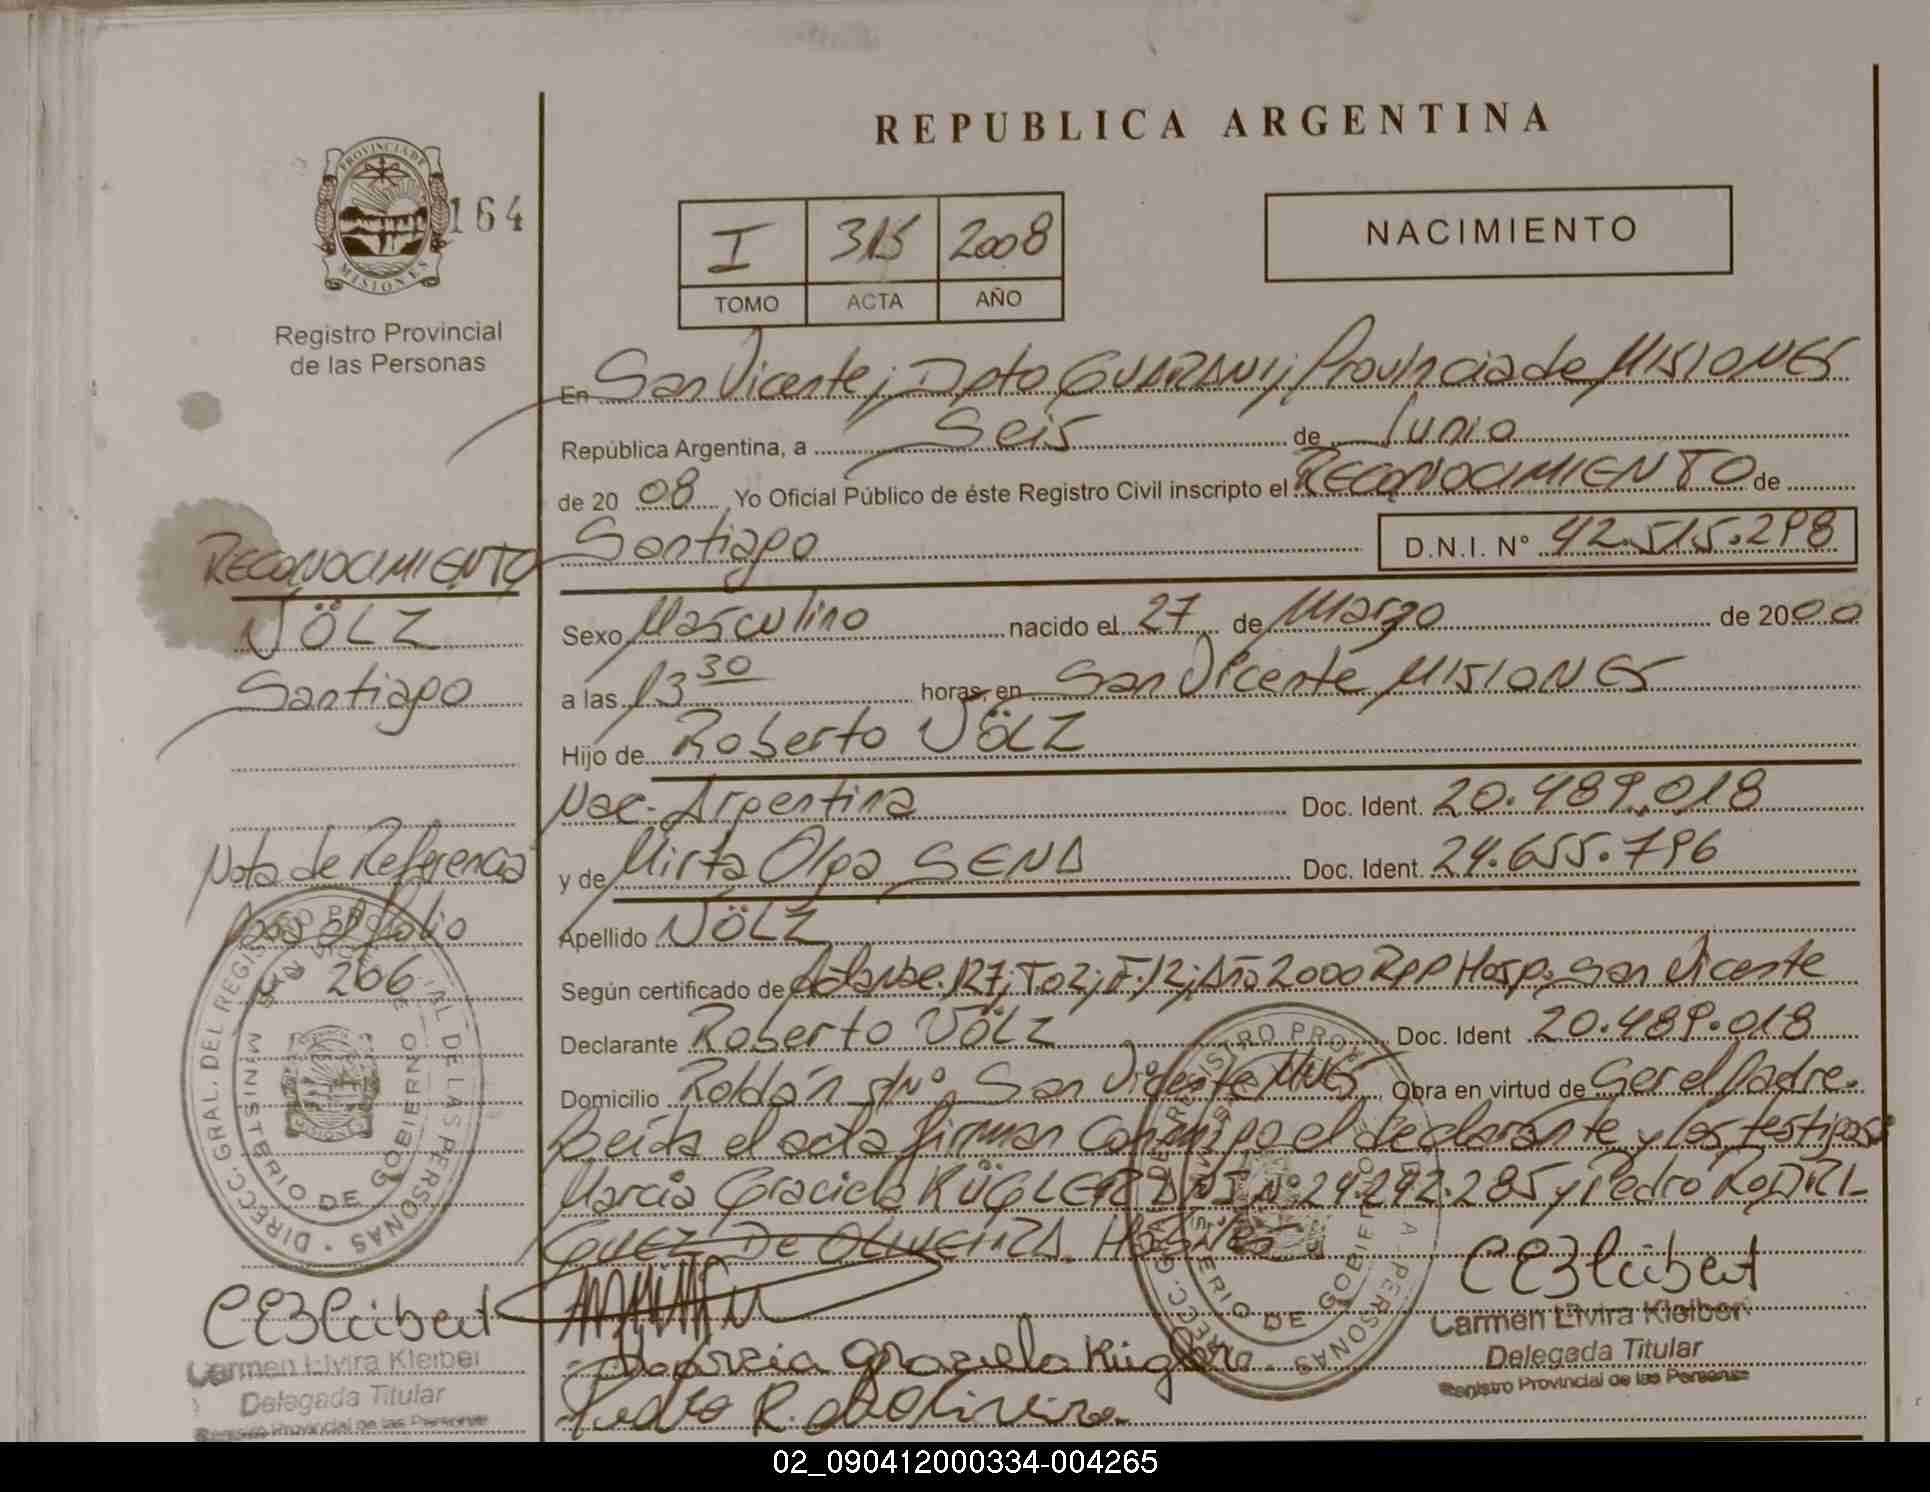 REPUBLICA ARGENTINA
PROVINCIA DE
MISIONES
164
Registro Provincial
de las Personas
I 315 2008
TOMO ACTA AÑO
NACIMIENTO
En San Vicente; Dpto GUARANI; Provincia de MISIONES
República Argentina, a Seis de Junio
de 2008 Yo Oficial Público de éste Registro Civil inscripto el RECONOCIMIENTO de
Santiago D.N.I. Nº 42.515.298
Sexo Masculino nacido el 27 de Marzo de 2000
a las 13 30 horas, en San Vicente MISIONES
Hijo de Roberto VÖLZ
Nac. Argentina Doc. Ident. 20.489.018
y de Mirta Olga SENA Doc. Ident. 24.655.796
Apellido VÖLZ
Según certificado de Acta Nac. 127; Tº 2; F. 12; Año 2000 RPP Hosp. San Vicente
Declarante Roberto VÖLZ Doc. Ident 20.489.018
Domicilio Roldán s/Nº San Vicente Mnes Obra en virtud de Ser el Padre.
Leída el acta firman conmigo el declarante y los testigos:
Marcia Graciela KÜGLER DNI Nº 24.292.285 y Pedro RODRI-
GUEZ De OLIVEIRA.
Marcia Graciela Kügler
Pedro R. de Oliveira
Carmen Elvira Kleiber
Delegada Titular
Registro Provincial de las Personas
RECONOCIMIENTO
VÖLZ
Santiago
Nota de Referencia
Pasa al folio
206
DIRECC. GRAL. DEL REGISTRO PROVINCIAL DE LAS PERSONAS
MINISTERIO DE GOBIERNO
Carmen Elvira Kleiber
Delegada Titular
Registro Provincial de las Personas
02_090412000334-004265